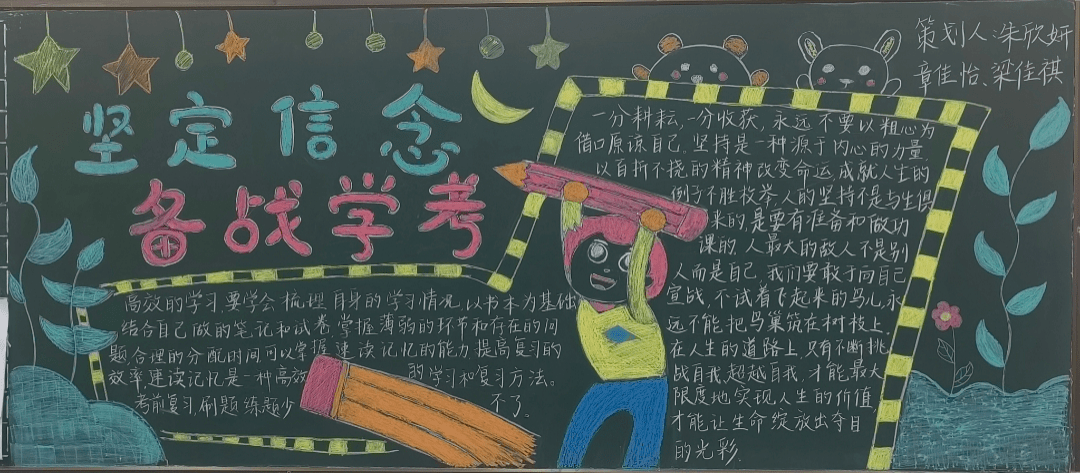 坚定信念
备战学考
策划人:朱欣妍
章佳怡、梁佳祺
高效的学习,要学会梳理自身的学习情况,以书本为基础
结合自己做的笔记和试卷,掌握薄弱的环节和存在的问
题,合理的分配时间可以掌握速读记忆的能力提高复习的
效率,速读记忆是一种高效的学习和复习方法。
考前复习,刷题练题少不了。
一分耕耘,一分收获,永远不要以粗心为
借口原谅自己,坚持是一种源于内心的力量,
以百折不挠的精神改变命运,成就人生的
例子不胜枚举,人的坚持不是与生俱
来的,是要有准备和做功
课的,人最大的敌人不是别
人而是自己,我们要敢于向自己
宣战,不试着飞起来的鸟儿,永
远不能把鸟巢筑在树枝上,
在人生的道路上,只有不断挑
战自我,超越自我,才能最大
限度地实现人生的价值,
才能让生命绽放出夺目
的光彩.